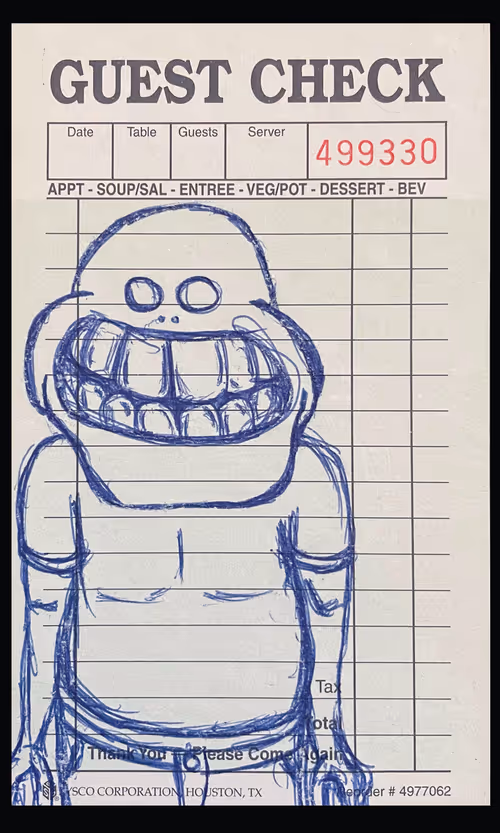 GUEST CHECK
Date Table Guests Server
499330
APPT - SOUP/SAL - ENTREE - VEG/POT - DESSERT - BEV
Tax
Total
Thank You - Please Come Again
SYSCO CORPORATION, HOUSTON, TX Reorder # 4977062